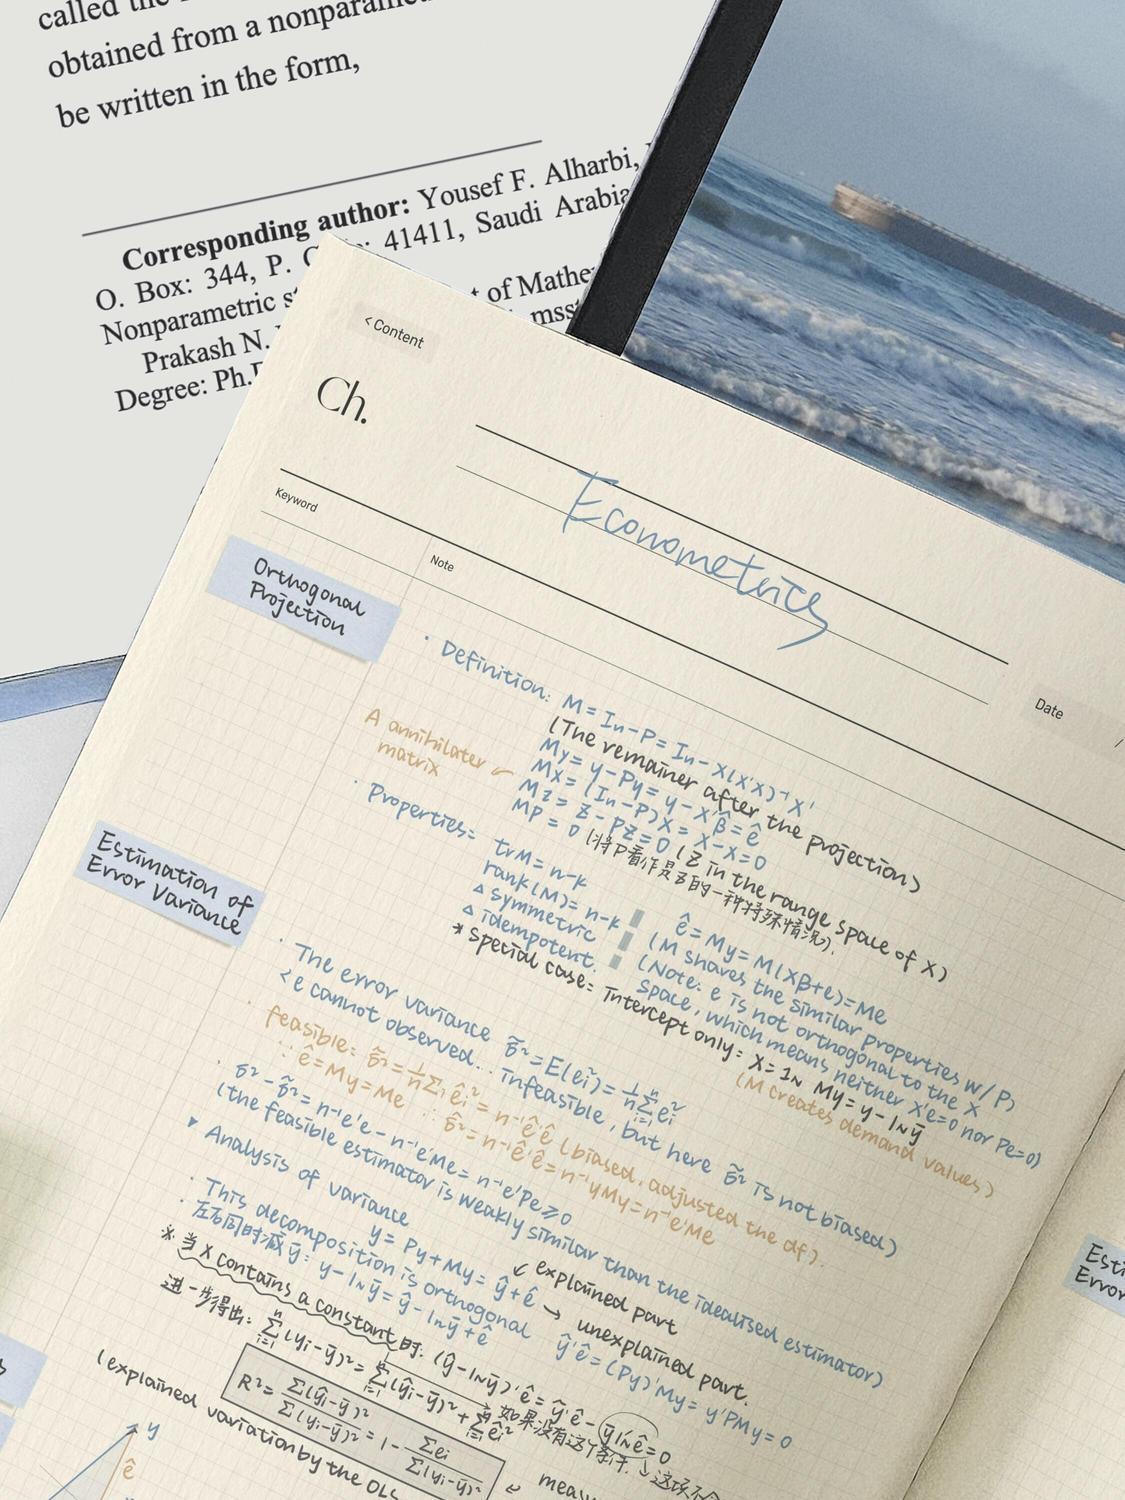 called the
obtained from a nonparamet
be written in the form,
Corresponding author: Yousef F. Alharbi,
O. Box: 344, P. 41411, Saudi Arabia
Nonparametric st t of Mathe
Prakash N. msst
Degree: Ph.D
<Content
Ch.
Econometrics
Keyword
Note
Date
/
Orthogonal
Projection
· Definition: M = In-P = In-X(X'X)⁻¹X'
(The remainer after the projection)
My = y-Py = y-X'β̂ = ê
MX = (In-P)X = X-X=0
Mz = z-Pz=0 (Z in the range space of X)
MP = 0 (将P看作是Z的一种特殊情况).
A annihilater
matrix
· Properties: trM = n-k
rank(M) = n-k
△ symmetric
△ idempotent.
ê = My = M(Xβ+e) = Me
(M shares the similar properties w/ P)
(Note: e is not orthogonal to the X
space, which means neither X'e=0 nor Pe=0)
* Special case: intercept only: X=1n My = y-1nȳ
(M creates demand values)
Estimation of
Error Variance
· The error variance σ̃² = E(ei²) = 1/n Σ(i=1..n) ei²
<e cannot observed... infeasible, but here σ̃² is not biased)
· feasible: σ̂² = 1/n Σ êi² = n⁻¹ê'ê (biased, adjusted the df).
∵ ê = My = Me ∴ σ̂² = n⁻¹ê'ê = n⁻¹yMy = n⁻¹e'Me
· σ̃²-σ̂² = n⁻¹e'e - n⁻¹e'Me = n⁻¹e'Pe ⩾ 0
(the feasible estimator is weakly similar than the idealised estimator)
▸ Analysis of variance
y = Py+My = ŷ+ê
explained part
unexplained part.
· This decomposition is orthogonal ŷ'ê = (Py)'My = y'PMy = 0
· 左右同时减ȳ: y-1nȳ = ŷ-1nȳ+ê
※ 当 X contains a constant 时. (ŷ-1nȳ)'ê = ŷ'ê - ȳ1n'ê = 0
进一步得出: Σ(i=1..n) (yi-ȳ)² = Σ(i=1..n) (ŷi-ȳ)² + Σ(i=1..n) êi²
如果没有这个条件. 这项不
R² = Σ(ŷi-ȳ)² / Σ(yi-ȳ)² = 1 - Σei / Σ(yi-ȳ)²
(explained variation by the OLS
y
ê
Esti
Error